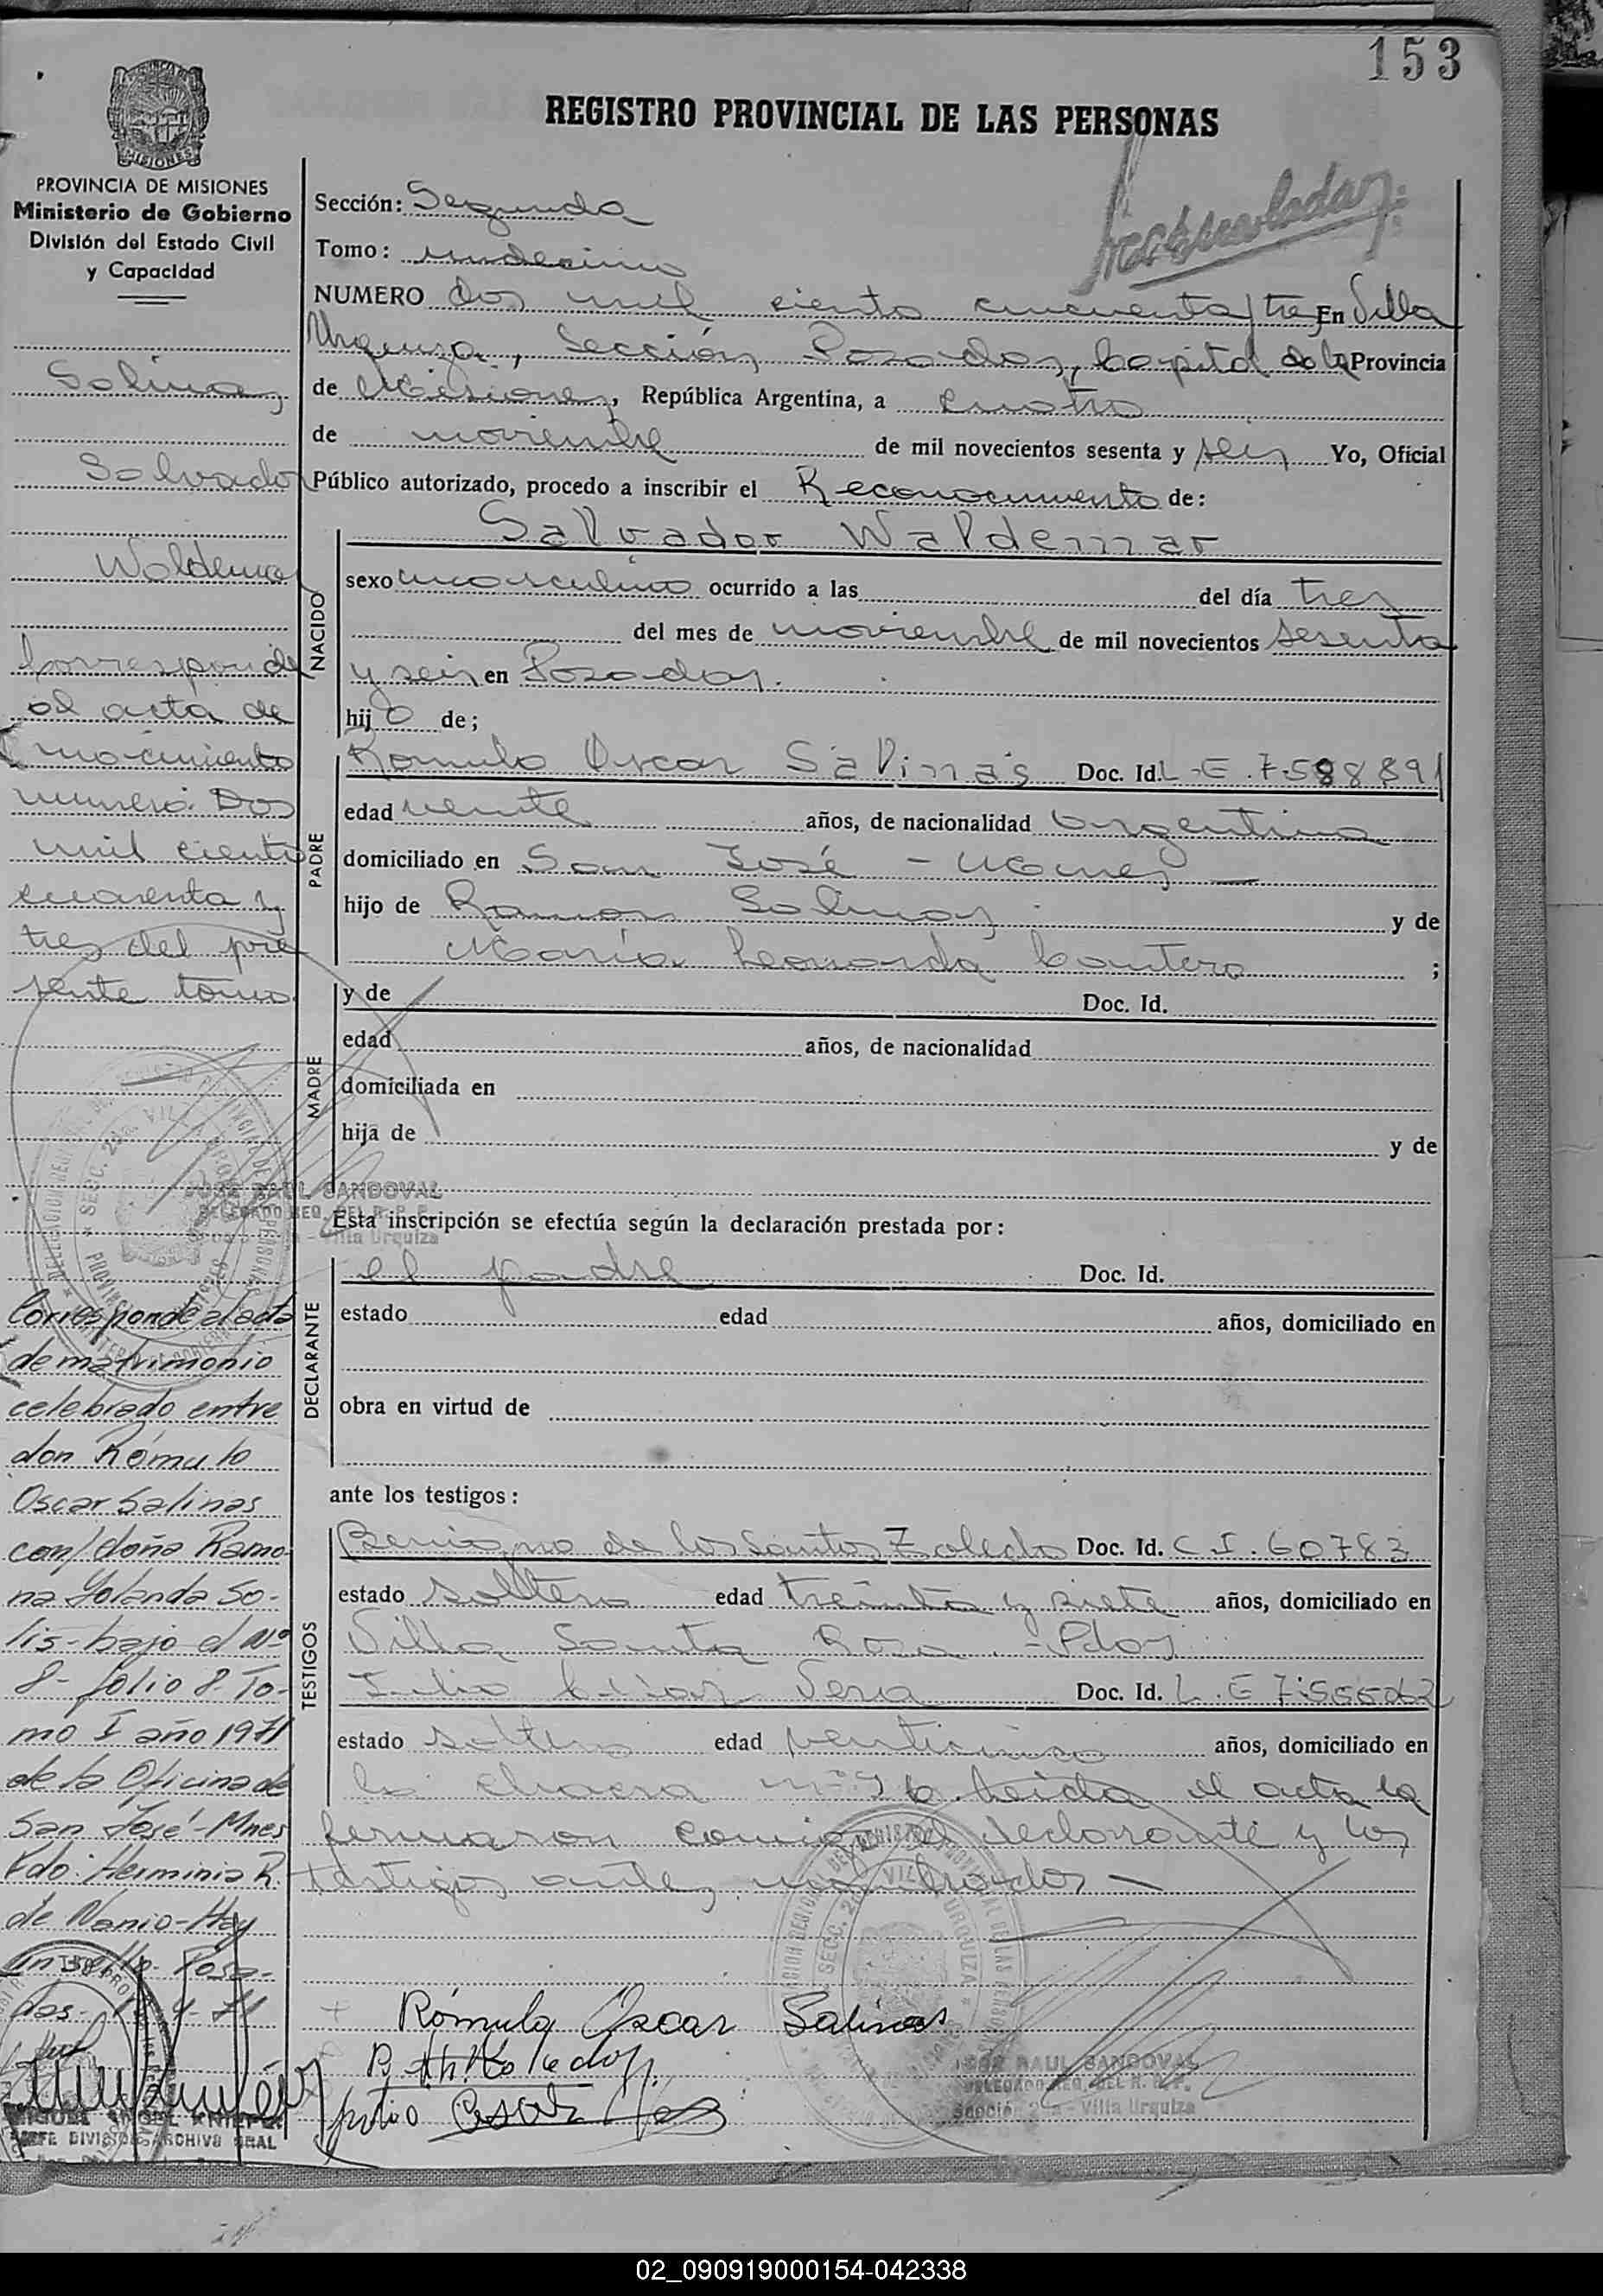 153
REGISTRO PROVINCIAL DE LAS PERSONAS
MISIONES
PROVINCIA DE MISIONES
Ministerio de Gobierno
División del Estado Civil
y Capacidad
Salinas
Salvador
Waldemar
Corresponde
al acta de
nacimiento
numero Dos
mil ciento
cuarenta y
tres del pre
sente tomo
JOSE RAUL SANDOVAL
DELEGADO REG. DEL R. P. P.
Villa Urquiza
Corresponde al acta
de matrimonio
celebrado entre
don Rómulo
Oscar Salinas
con/ doña Ramo-
na Yolanda So-
lis- bajo el Nº
8- folio 8 To-
mo I año 1971
de la Oficina de
San José- Mnes
Fdo: Herminia R.
de Nanio- Hay
un sello. Posa-
das-
MIGUEL ANGEL
JEFE DIVISION ARCHIVO GRAL
Sección: Segunda
Tomo: undecimo
NUMERO dos mil ciento cincuenta/tres En Villa
Urquiza, Sección Posadas, Capital de la Provincia
de Misiones, República Argentina, a cuatro
de noviembre de mil novecientos sesenta y seis Yo, Oficial
Público autorizado, procedo a inscribir el Reconocimiento de:
NACIDO
Salvador Waldemar
sexo masculino ocurrido a las del día tres
del mes de noviembre de mil novecientos sesenta
y seis en Posadas.
hijo de;
PADRE
Romulo Oscar Salinas Doc. Id. L-E.7.588891
edad veinte años, de nacionalidad argentina
domiciliado en San José - Mnes -
hijo de Ramon Salinas y de
María Leonarda Cantero ;
MADRE
y de Doc. Id.
edad años, de nacionalidad
domiciliada en
hija de y de
Esta inscripción se efectúa según la declaración prestada por:
DECLARANTE
el padre Doc. Id.
estado edad años, domiciliado en
obra en virtud de
ante los testigos:
TESTIGOS
Benigno de los Santos Toledo Doc. Id. C.I. 60783
estado soltero edad treinta y siete años, domiciliado en
Villa Santa Rosa - Pdas
Julio Cesar Vera Doc. Id. L.E
estado soltero edad venticinco años, domiciliado en
la chacra leida el acta la
firmaron conmigo el declarante y los
testigos antes nombrados -
Rómulo Oscar Salinas
Julio Cesar
JOSE RAUL SANDOVAL
DELEGADO REG. DEL R. P. P.
Sección 2da - Villa Urquiza
02_090919000154-042338